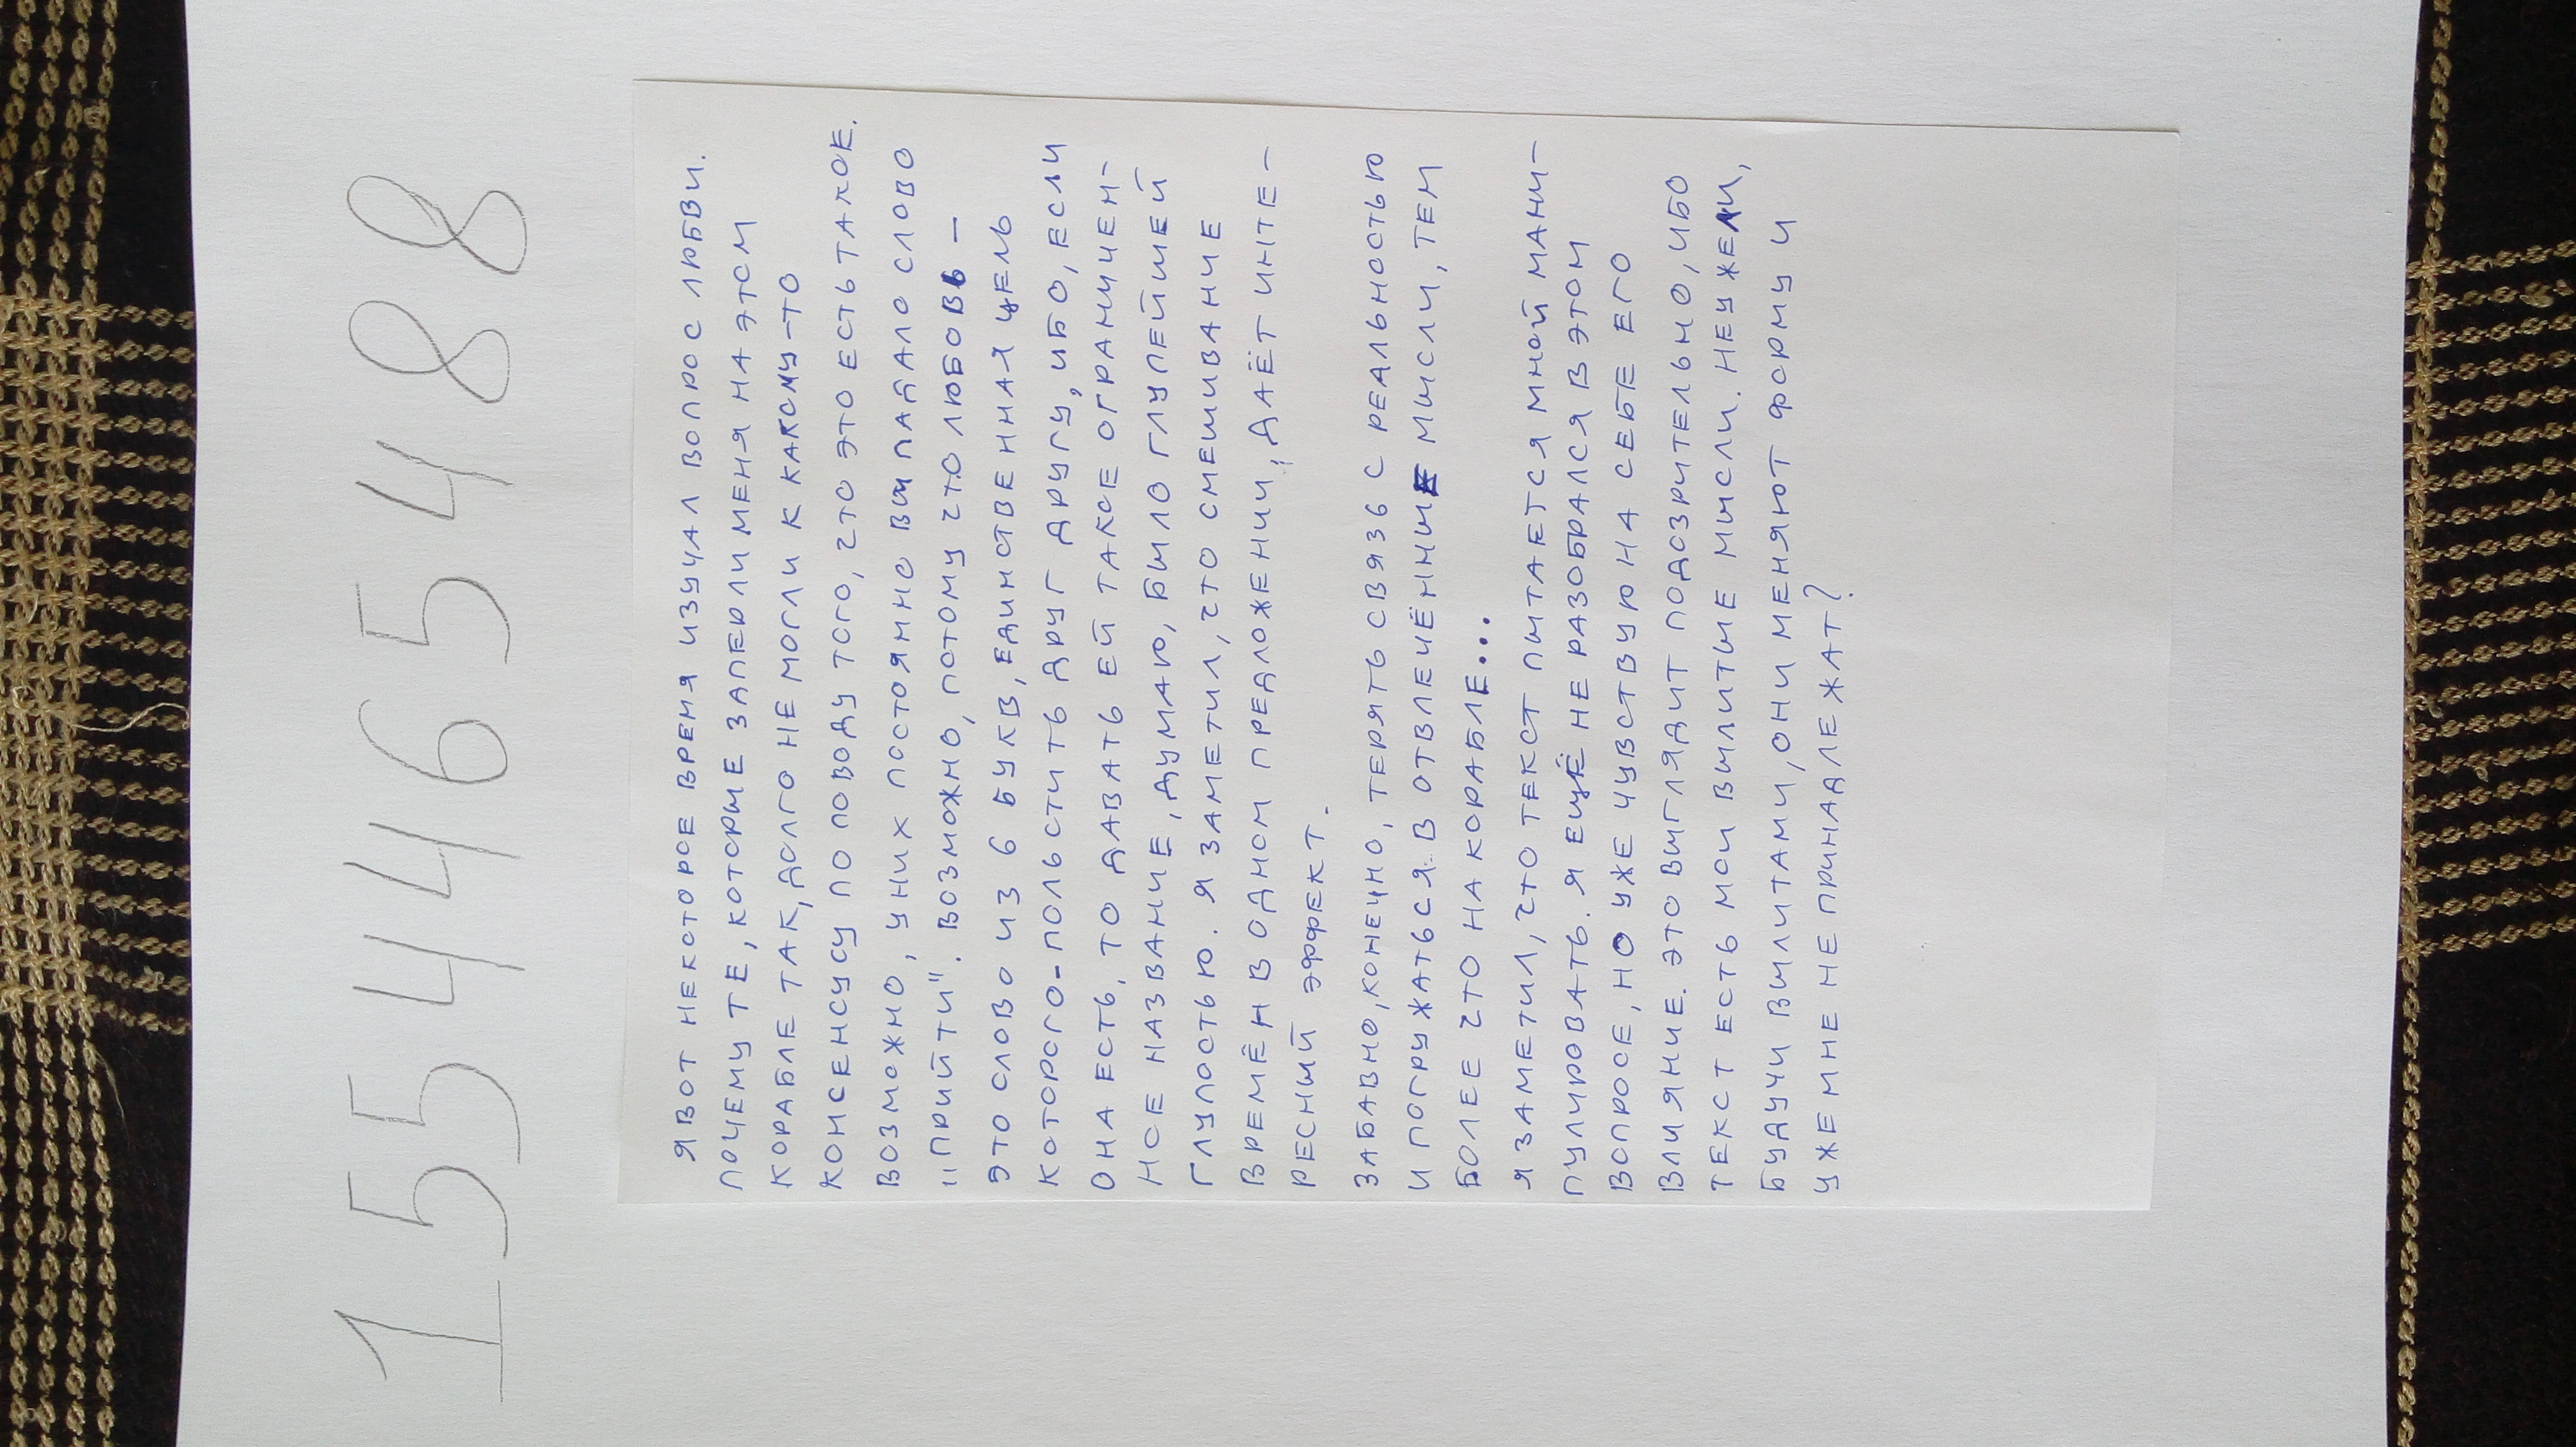 15546548 8
Я ВОТ НЕКОТОРОЕ ВРЕМЯ ИЗУЧАЛ ВОПРОС ЛЮБВИ.
ПОЧЕМУ ТЕ, КОТОРЫЕ ЗАПЕРЛИ МЕНЯ НА ЭТОМ
КОРАБЛЕ ТАК, ДОЛГО НЕ МОГЛИ К КАКОМУ-ТО
КОНСЕНСУСУ ПО ПОВОДУ ТОГО, ЧТО ЭТО ЕСТЬ ТАКОЕ.
ВОЗМОЖНО, У НИХ ПОСТОЯННО ВЫПАДАЛО СЛОВО
"ПРИЙТИ". ВОЗМОЖНО, ПОТОМУ ЧТО ЛЮБОВЬ –
ЭТО СЛОВО ИЗ 6 БУКВ, ЕДИНСТВЕННАЯ ЦЕЛЬ
КОТОРОГО-ПОЛЬСТИТЬ ДРУГ ДРУГУ, ИБО, ЕСЛИ
ОНА ЕСТЬ, ТО ДАВАТЬ ЕЙ ТАКОЕ ОГРАНИЧЕН-
НОЕ НАЗВАНИЕ, ДУМАЮ, БЫЛО ГЛУПЕЙШЕЙ
ГЛУПОСТЬЮ. Я ЗАМЕТИЛ, ЧТО СМЕШИВАНИЕ
ВРЕМЁН В ОДНОМ ПРЕДЛОЖЕНИИ, ДАЁТ ИНТЕ-
РЕСНЫЙ ЭФФЕКТ.
ЗАБАВНО, КОНЕЧНО, ТЕРЯТЬ СВЯЗЬ С РЕАЛЬНОСТЬЮ
И ПОГРУЖАТЬСЯ В ОТВЛЕЧЁННЫЕ МЫСЛИ, ТЕМ
БОЛЕЕ ЧТО НА КОРАБЛЕ...
Я ЗАМЕТИЛ, ЧТО ТЕКСТ ПЫТАЕТСЯ МНОЙ МАНИ-
ПУЛИРОВАТЬ. Я ЕЩЁ НЕ РАЗОБРАЛСЯ В ЭТОМ
ВОПРОСЕ, НО УЖЕ ЧУВСТВУЮ НА СЕБЕ ЕГО
ВЛИЯНИЕ. ЭТО ВЫГЛЯДИТ ПОДОЗРИТЕЛЬНО, ИБО
ТЕКСТ ЕСТЬ МОИ ВЫЛИТЫЕ МЫСЛИ. НЕУЖЕЛИ,
БУДУЧИ ВЫЛИТАМИ, ОНИ МЕНЯЮТ ФОРМУ И
УЖЕ МНЕ НЕ ПРИНАДЛЕЖАТ?